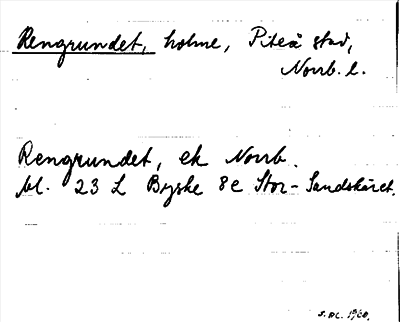 Rengrundet, holme, Piteå stad,
Norrb. l.
Rengrundet, ek Norrb.
bl. 23 L Byske 8e Stor-Sandskäret.
1960.